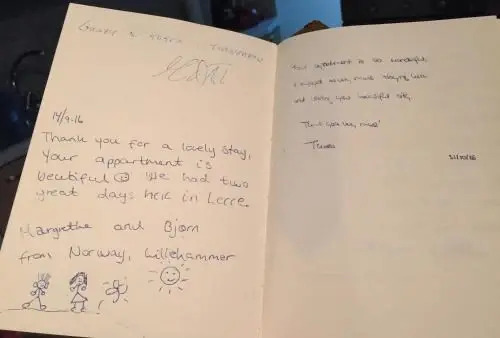 14/9-16
Thank you for a lovely stay,
Your appartment is
beutiful We had two
great days here in Lecce.
Margrethe and Bjørn
from Norway, Lillehammer
Your apartment is so wonderful,
I enjoyed so very much staying here
and visiting your beautiful city.
Thank you very much!
21/10/16